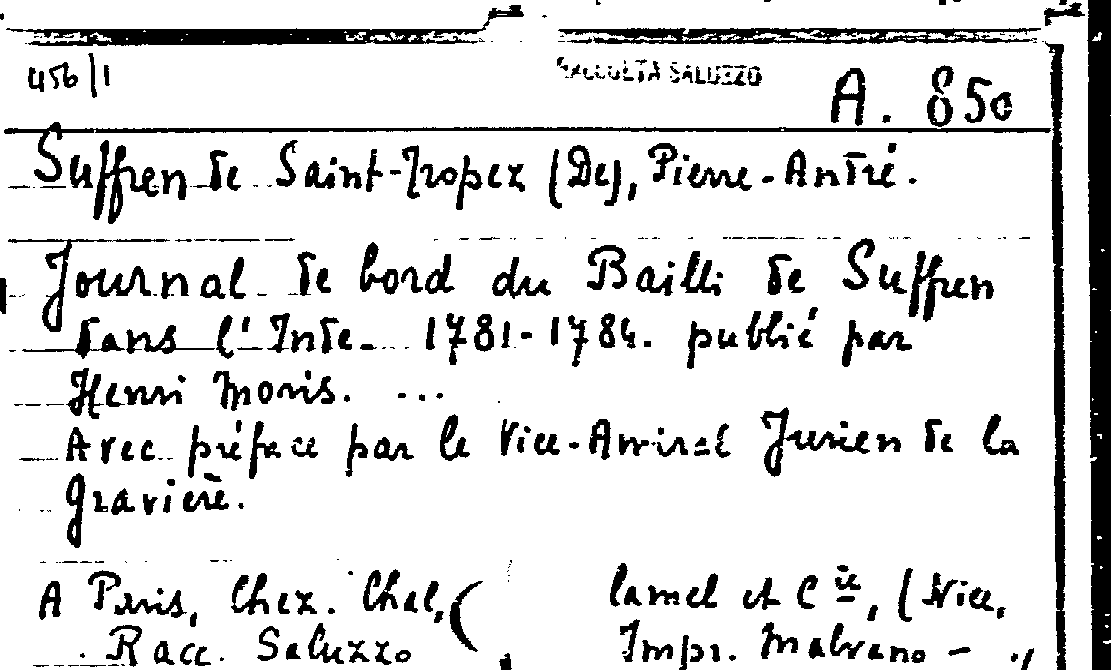 456/1
RACCOLTA SALUZZO
A. 850
Suffren de Saint-Tropez (De), Pierre-André.
Journal de bord du Bailli de Suffren
dans l'Inde. 1781-1784. publié par
Henri Moris. ...
Avec préface par le Vice-Amiral Jurien de la
Gravière.
A Paris, Chez. Chal, ( lamel et Cie, (Nice,
Racc. Saluzzo Impr. Malvano -